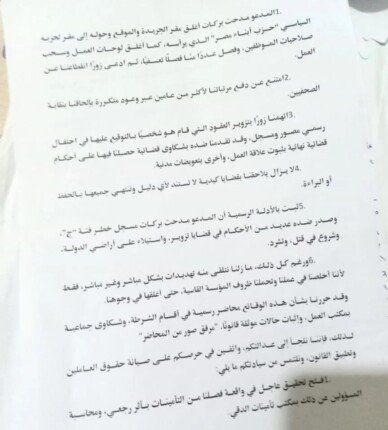 1.المدعو مدحت بركات أغلق مقر الجريدة والموقع وحوله إلى مقر لحزبه
السياسي "حزب أبناء مصر" الذي يرأسه، كما أغلق لوحات العمل وسحب
صلاحيات الموظفين، وفصل عددًا منا فصلًا تعسفيًا، ثم ادعى زورًا انقطاعنا عن
العمل.
2.امتنع عن دفع مرتباتنا لأكثر من عامين عبر وعود متكررة بإلحاقنا بنقابة
الصحفيين.
3.اتهمنا زورًا بتزوير العقود التي قام هو شخصيًا بالتوقيع عليها في احتفال
رسمي مصور ومسجل، وقد تقدمنا ضده بشكاوى قضائية حصلنا فيها على أحكام
قضائية نهائية بثبوت علاقة العمل، وأخرى بتعويضات مدنية.
4.لا يزال يلاحقنا بقضايا كيدية لا تستند لأي دليل وتنتهي جميعها بالحفظ
أو البراءة.
5.ثبت بالأدلة الرسمية أن المدعو مدحت بركات مسجل خطر فئة "ج"،
وصدر ضده عديد من الأحكام في قضايا تزوير، واستيلاء على أراضي الدولة،
وشروع في قتل، وتشرد.
6.ورغم كل ذلك، ما زلنا نتلقى منه تهديدات بشكل مباشر وغير مباشر، فقط
لأننا أخلصنا في عملنا وتحملنا ظروف المؤسسة القاسية، حتى أغلقها في وجوهنا.
وقد حررنا بشأن هذه الوقائع محاضر رسمية في أقسام الشرطة، وشكاوى جماعية
بمكتب العمل، وإثبات حالات موثقة قانونًا، "مرفق صور من المحاضر"
لذلك، فإننا نلجأ إلى عدالتكم، واثقين في حرصكم على صيانة حقوق العاملين
وتطبيق القانون، ونلتمس من سيادتكم ما يلي:
1.فتح تحقيق عاجل في واقعة فصلنا من التأمينات بأثر رجعي، ومحاسبة
المسؤولين عن ذلك بمكتب تأمينات الدقي.